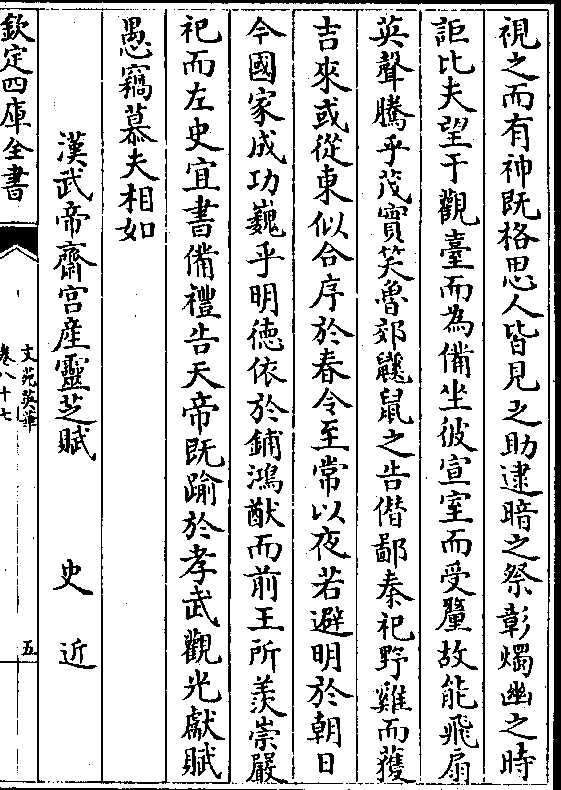 視之而有神既格思人皆見之助逮暗之祭彰燭幽之時
詎比夫望于觀臺而為備坐彼宣室而受釐故能飛扇
英聲騰乎茂實笑魯郊鼷鼠之告僭鄙秦祀野雞而獲
吉來或從東似合序於春令至常以夜若避明於朝日
今國家成功巍乎明德依於鋪鴻猷而前王所羨崇嚴
祀而左史宜書備禮告天帝既踰於孝武觀光獻賦
愚竊慕夫相如
漢武帝齋宫産靈芝賦 史近
欽定四庫全書
文苑英華
卷八十七
五